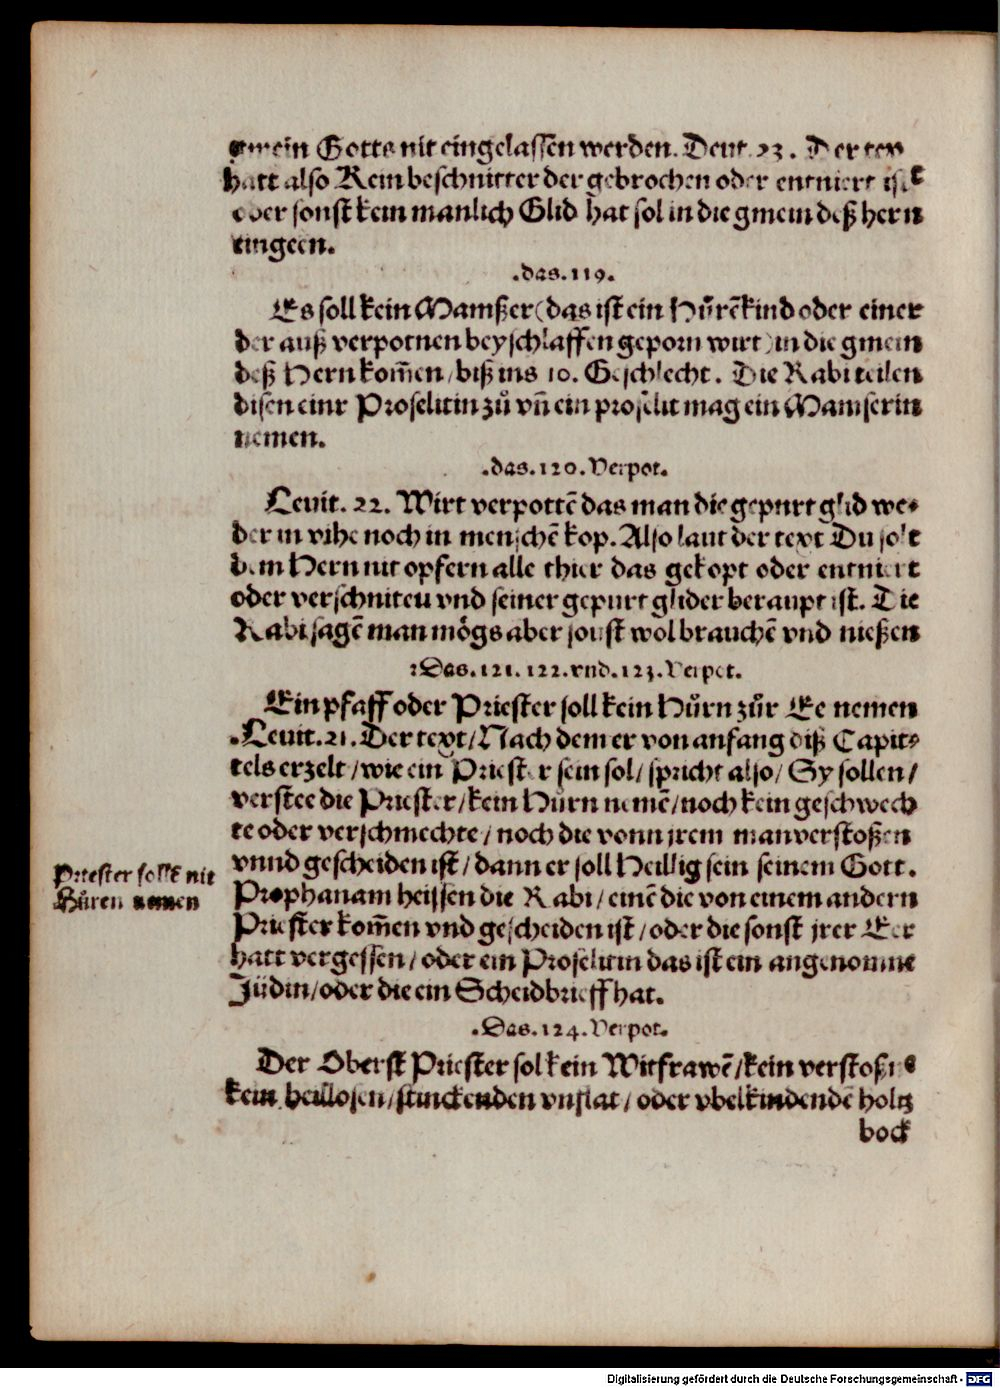 gmein Gotts nit eingelassen werden. Deut. 23. Der tex
hatt also Kein beschnitter der gebrochen oder entniert ist
oder sonst kein manlich Glid hat sol in die gmein deß hern
eingeen.
.das. 119.
Es soll kein Mamßer (das ist ein Hůrẽkind oder einer
der auß verpotnen beyschlaffen geporn wirt) in die gmein
deß Hern kom̃en / biß ins 10. Geschlecht. Die Rabi teilen
disen einr Proselitin zů vñ ein proselit mag ein Mamserin
nemen.
.das. 120. Verpot.
Levit. 22. Wirt verpottẽ das man die gepurt glid we⸗
der in vihe noch in menschẽ kop. Also laut der text Du solt
dem Hern nit opfern alle thier das gekopt oder entniert
oder verschniten vnd seiner gepurt glider beraupt ist. Die
Rabi sagẽ man mögs aber sonst wol brauchẽ vnd nießen
:Das. 121. 122. vnd. 123. Verpot.
Ein pfaff oder Priester soll kein Hůrn zůr Ee nemen
.Levit. 21. Der text / Nach dem er von anfang diß Capit⸗
tels erzelt / wie ein Priester sein sol / spricht also / Sy sollen /
verstee die Priester / kein Hůrn nemẽ / noch kein geschwech
te oder verschmechte / noch die vonn jrem man verstoßen
vnnd gescheiden ist / dann er soll Heillig sein seinem Gott.
Priester sollẽ nit
Hůren nemen
Prophanam heissen die Rabi / einẽ die von einem andern
Priester kom̃en vnd gescheiden ist / oder die sonst jrer Eer
hatt vergessen / oder ein Proselitin das ist ein angenomne
Jüdin / oder die ein Scheidbrieff hat.
.Das. 124. Verpot.
Der Oberst Priester sol kein Witfrawẽ / kein verstoßne
kein heillosen / stinckenden vnflat / oder vbelkindendẽ holtz
bock
Digitalisierung gefördert durch die Deutsche Forschungsgemeinschaft - DFG